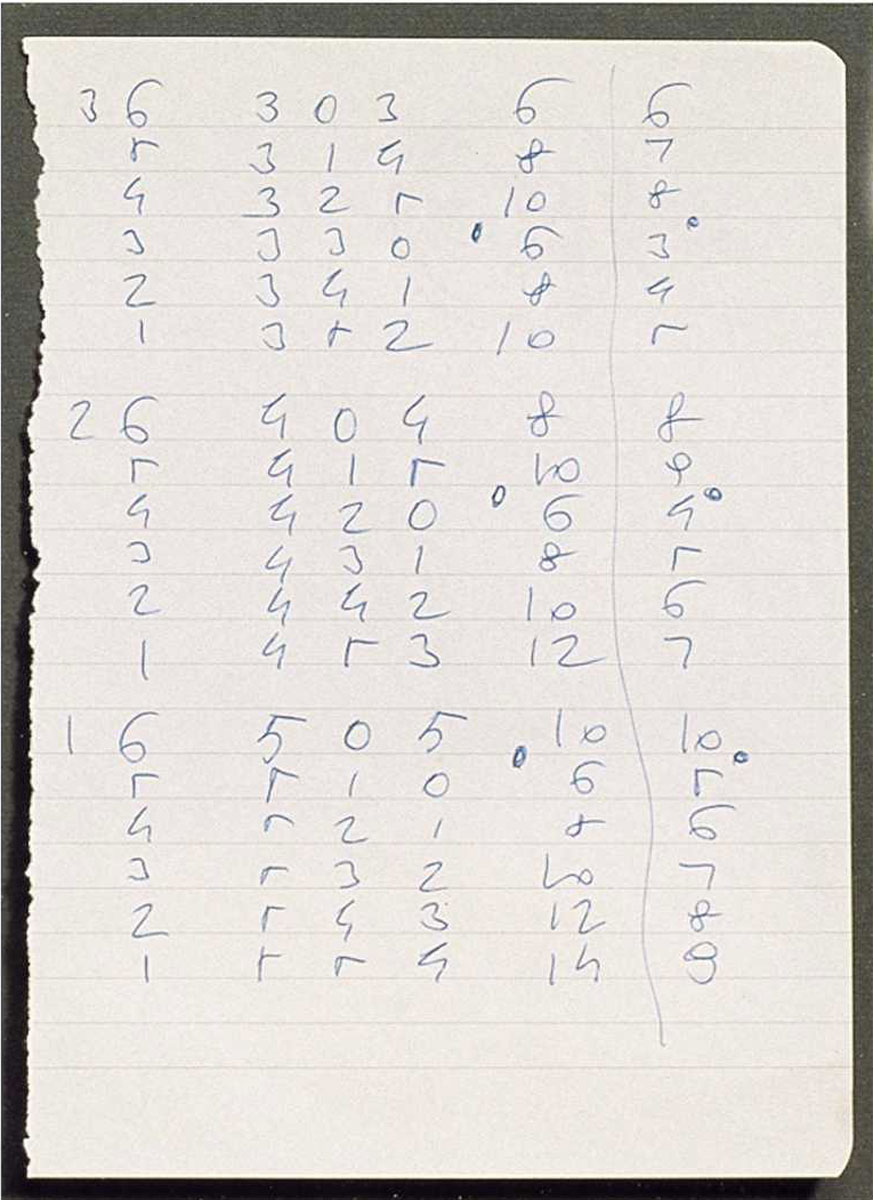 3 6 3 0 3 6 6
5 3 1 4 8 7
4 3 2 5 10 8
3 3 3 0 ° 6 3°
2 3 4 1 8 4
1 3 5 2 10 5
2 6 4 0 4 8 8
5 4 1 5 10 9
4 4 2 0 ° 6 4°
3 4 3 1 8 5
2 4 4 2 10 6
1 4 5 3 12 7
1 6 5 0 5 10 10
5 5 1 0 ° 6 5°
4 5 2 1 8 6
3 5 3 2 10 7
2 5 4 3 12 8
1 5 5 4 14 9